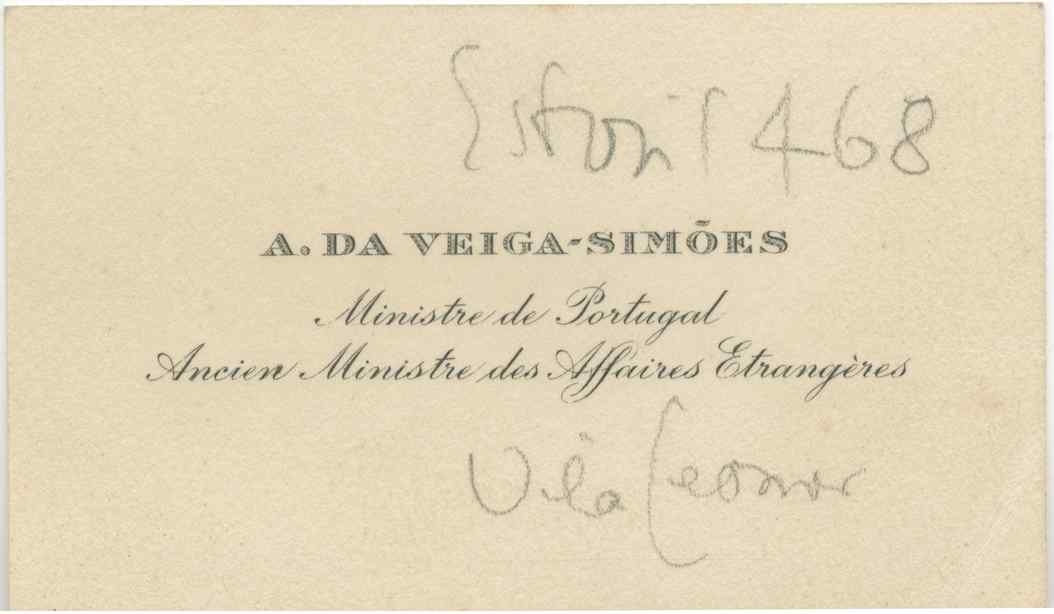 Estoril 468
A. DA VEIGA-SIMÕES
Ministre de Portugal
Ancien Ministre des Affaires Etrangères
Vila Leonor